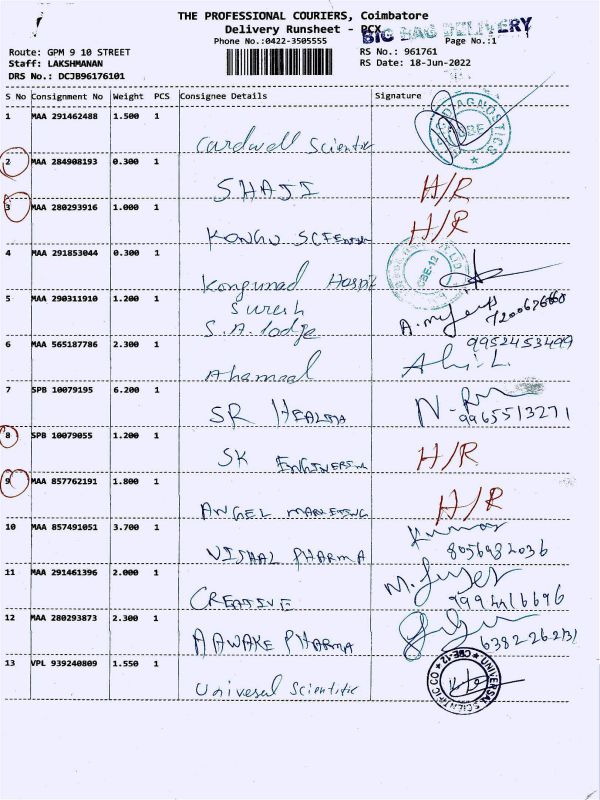 THE PROFESSIONAL COURIERS, Coimbatore
Delivery Runsheet - PCX
BIG BAG DELIVERY
Phone No.:0422-3505555
Page No.:1
Route: GPM 9 10 STREET
RS No.: 961761
Staff: LAKSHMANAN
RS Date: 18-Jun-2022
DRS No.: DCJB96176101
S No Consignment No Weight PCS Consignee Details Signature
1 MAA 291462488 1.500 1
Cardwell Scientific
DIAGNOSTICS
CBE
2 MAA 284908193 0.300 1
SHAJI H/R
3 MAA 280293916 1.000 1
KONGU H/R
4 MAA 291853044 0.300 1
Kongunad Hospit
CBE-12
5 MAA 290311910 1.200 1
Suresh
S.A. lodge
6 MAA 565187786 2.300 1
9952453499
Ahamad
7 SPB 10079195 6.200 1
SR HEALTH
9965513271
8 SPB 10079055 1.200 1
SK H/R
9 MAA 857762191 1.800 1
ANGEL MARKETING H/R
10 MAA 857491051 3.700 1
Kumar
VISHAL PHARMA 8056982036
11 MAA 291461396 2.000 1
CREATIVE
12 MAA 280293873 2.300 1
AAWAKE PHARMA
13 VPL 939240809 1.550 1
Universal Scientific
UNIVERSAL SCIENTIFIC CO
CBE-12